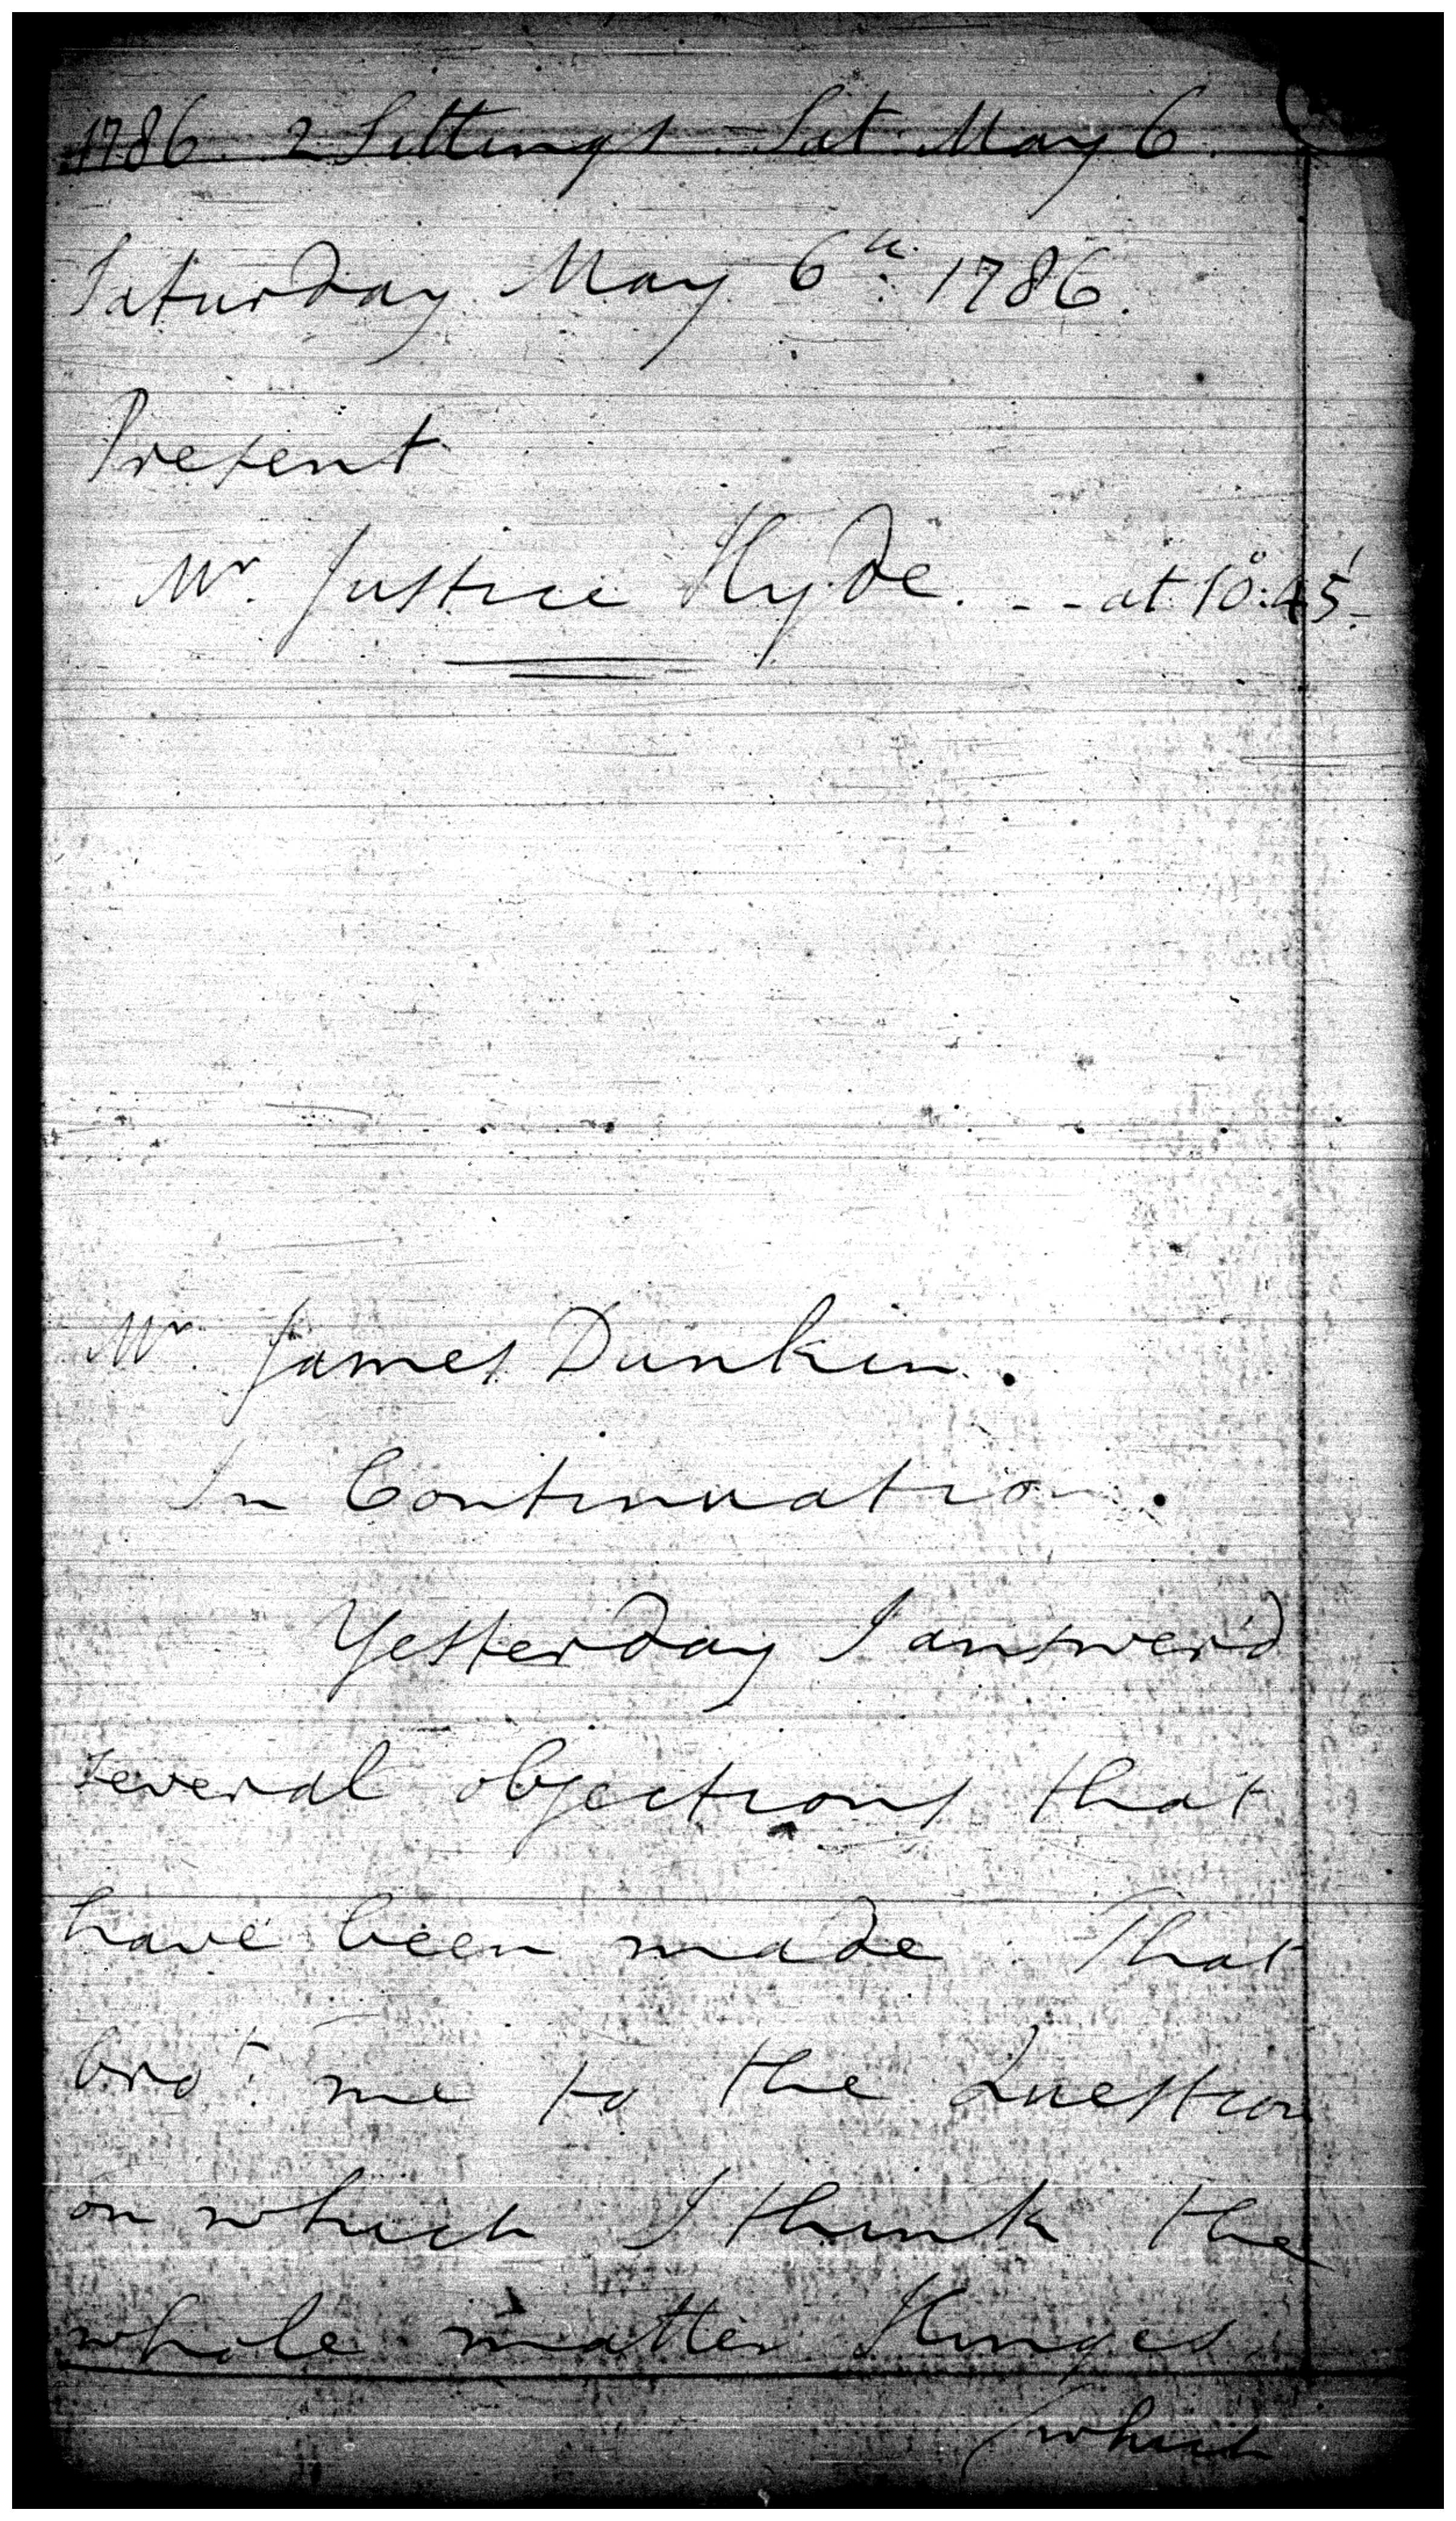 1786. 2 Sittings. Sat. May 6.
Saturday May 6th. 1786.
Present
Mr. Justice Hyde. - - at 10°:45'-
Mr. James Dunkin.
In Continuation.
Yesterday I answer'd
several objections that
have been made. That
bro't. me to the Question
on which I think the
whole matter Hinges
(which